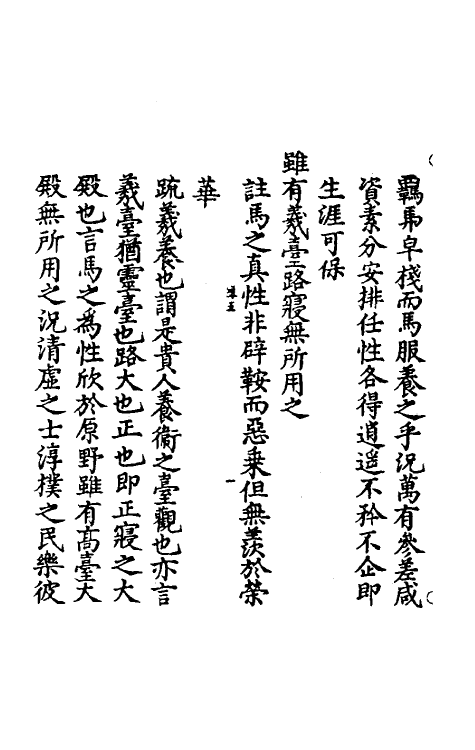 羈馽皁棧而馬服養之乎況萬有參差咸
資素分安排任性各得逍遥不矜不企即
生涯可保
雖有義臺路寢無所用之
註馬之真性非辟鞍而惡乗但無羨於榮
華
疏義養也謂是貴人養衛之臺觀也亦言
義臺猶靈臺也路大也正也即正寢之大
殿也言馬之為性欣於原野雖有高臺大
殿無所用之況清虛之士淳樸之民樂彼